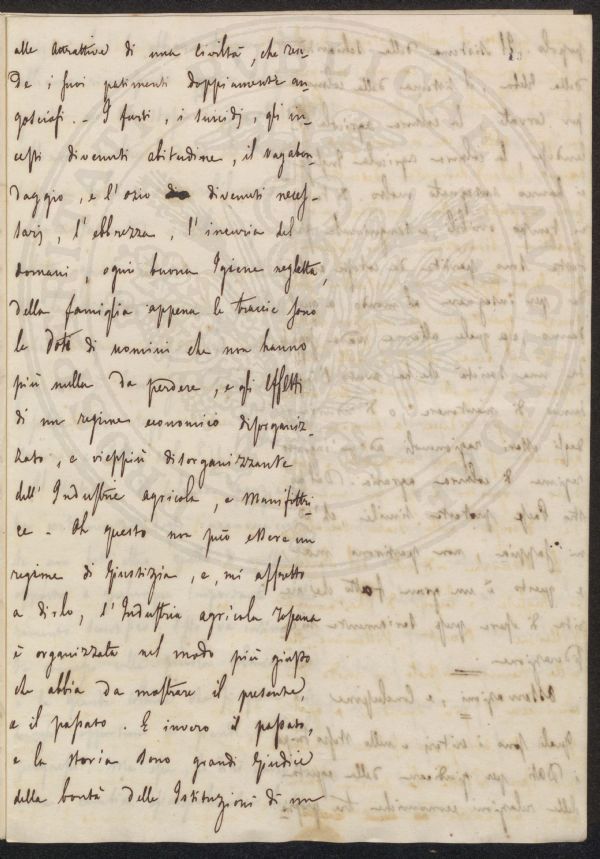 alle attrattive di una civiltà, che ren-
de i suoi patimenti doppiamente an-
gosciosi. - I furti, i suicidj, gli in-
cesti divenuti abitudine, il vagabon-
daggio, e l'ozio divenuti neces-
sarj, l'ebbrezza, l'incuria del
domani, ogni buona Igiene negletta,
della famiglia appena le traccie sono
le doti di uomini che non hanno
più nulla da perdere, e gli effetti
di un regime economico disorganiz-
zato, e vieppiù disorganizzante
dell'Industria agricola, e Manifattri-
ce - Oh questo non può essere un
regime di Giustizia, e, mi affretto
a dirlo, l'Industria agricola Tosana
è organizzata nel modo più giusto
che abbia da mostrare il presente,
e il passato. E invero il passato,
e la storia sono grandi Giudici
della bontà delle Istituzioni di un